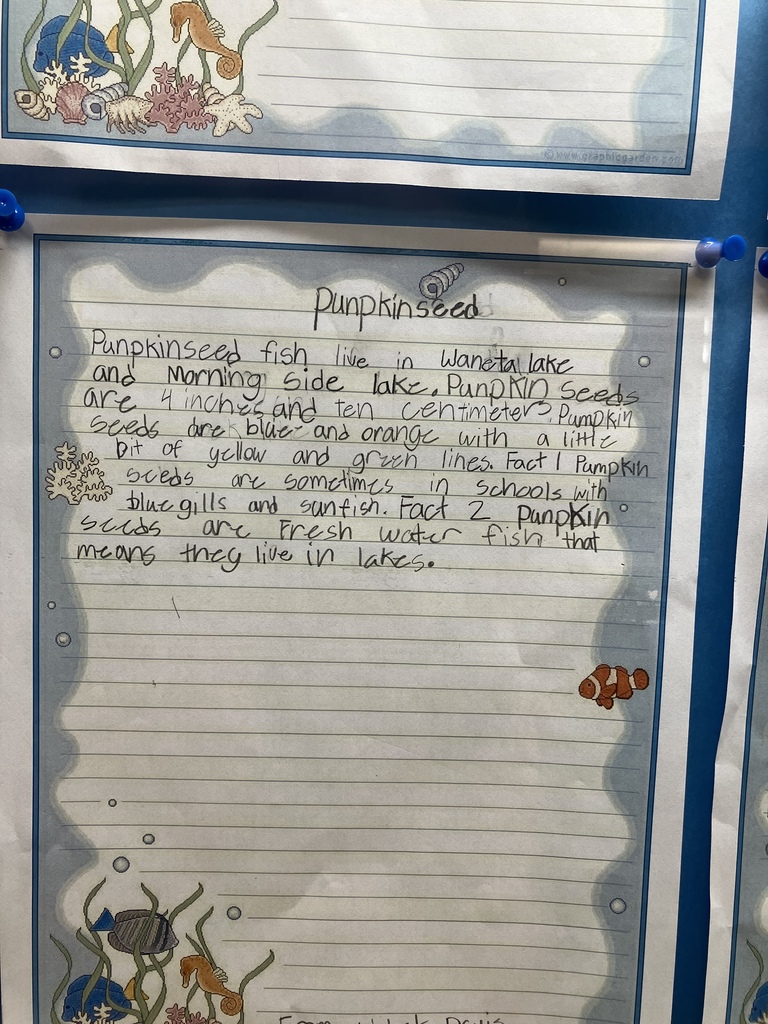 © www.graphicgarden.com
Punpkinseed
Punpkinseed fish live in Waneta lake
and Morning side lake. Punpkin Seeds
are 4 inches and ten centimeters. Pumpkin
seeds are blue and orange with a little
bit of yellow and green lines. Fact 1 Pumpkin
seeds are sometimes in schools with
blue gills and sunfish. Fact 2 Punpkin
seeds are Fresh water fish that
means they live in lakes.